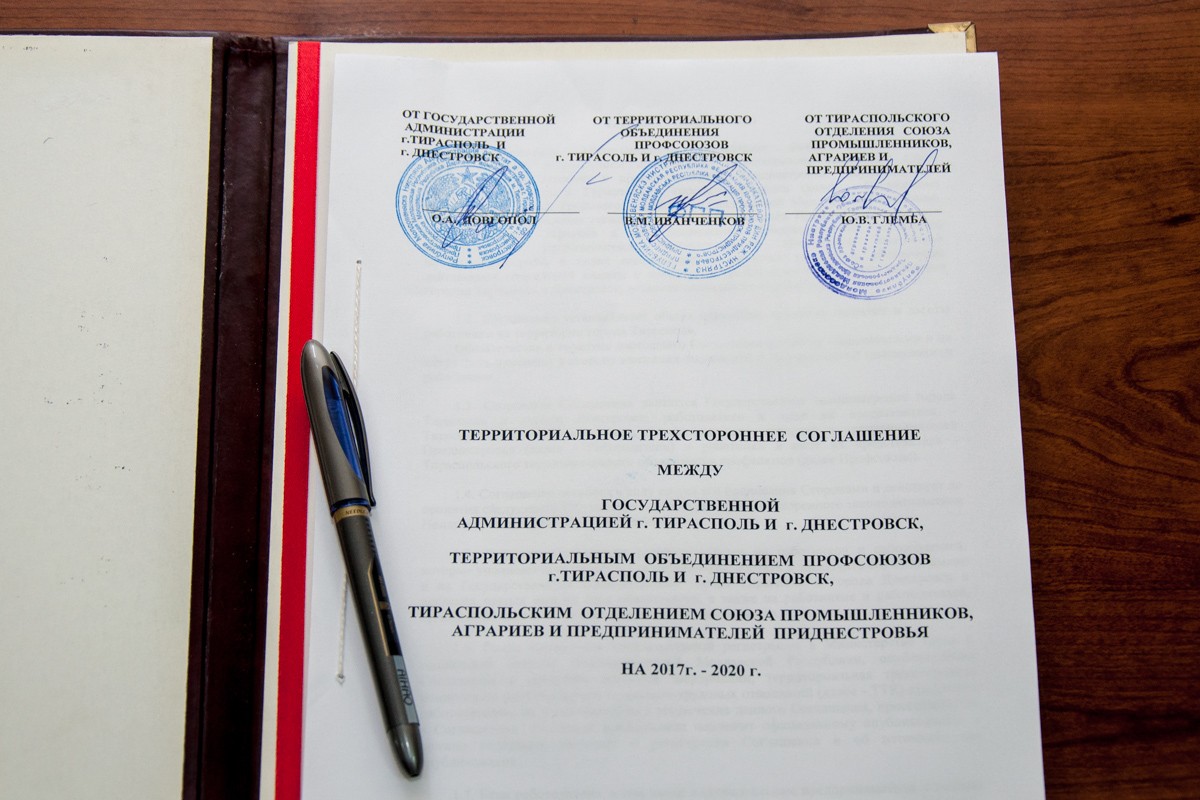 ОТ ГОСУДАРСТВЕННОЙ
АДМИНИСТРАЦИИ
г.ТИРАСПОЛЬ И
г. ДНЕСТРОВСК
О.А. ДОВГОПОЛ
ОТ ТЕРРИТОРИАЛЬНОГО
ОБЪЕДИНЕНИЯ
ПРОФСОЮЗОВ
г. ТИРАСОЛЬ И г. ДНЕСТРОВСК
В.М. ИВАНЧЕНКОВ
ОТ ТИРАСПОЛЬСКОГО
ОТДЕЛЕНИЯ СОЮЗА
ПРОМЫШЛЕННИКОВ,
АГРАРИЕВ И
ПРЕДПРИНИМАТЕЛЕЙ
Ю.В. ГЛЕМБА
ТЕРРИТОРИАЛЬНОЕ ТРЕХСТОРОННЕЕ СОГЛАШЕНИЕ
МЕЖДУ
ГОСУДАРСТВЕННОЙ
АДМИНИСТРАЦИЕЙ г. ТИРАСПОЛЬ И г. ДНЕСТРОВСК,
ТЕРРИТОРИАЛЬНЫМ ОБЪЕДИНЕНИЕМ ПРОФСОЮЗОВ
г.ТИРАСПОЛЬ И г. ДНЕСТРОВСК,
ТИРАСПОЛЬСКИМ ОТДЕЛЕНИЕМ СОЮЗА ПРОМЫШЛЕННИКОВ,
АГРАРИЕВ И ПРЕДПРИНИМАТЕЛЕЙ ПРИДНЕСТРОВЬЯ
НА 2017г. - 2020 г.